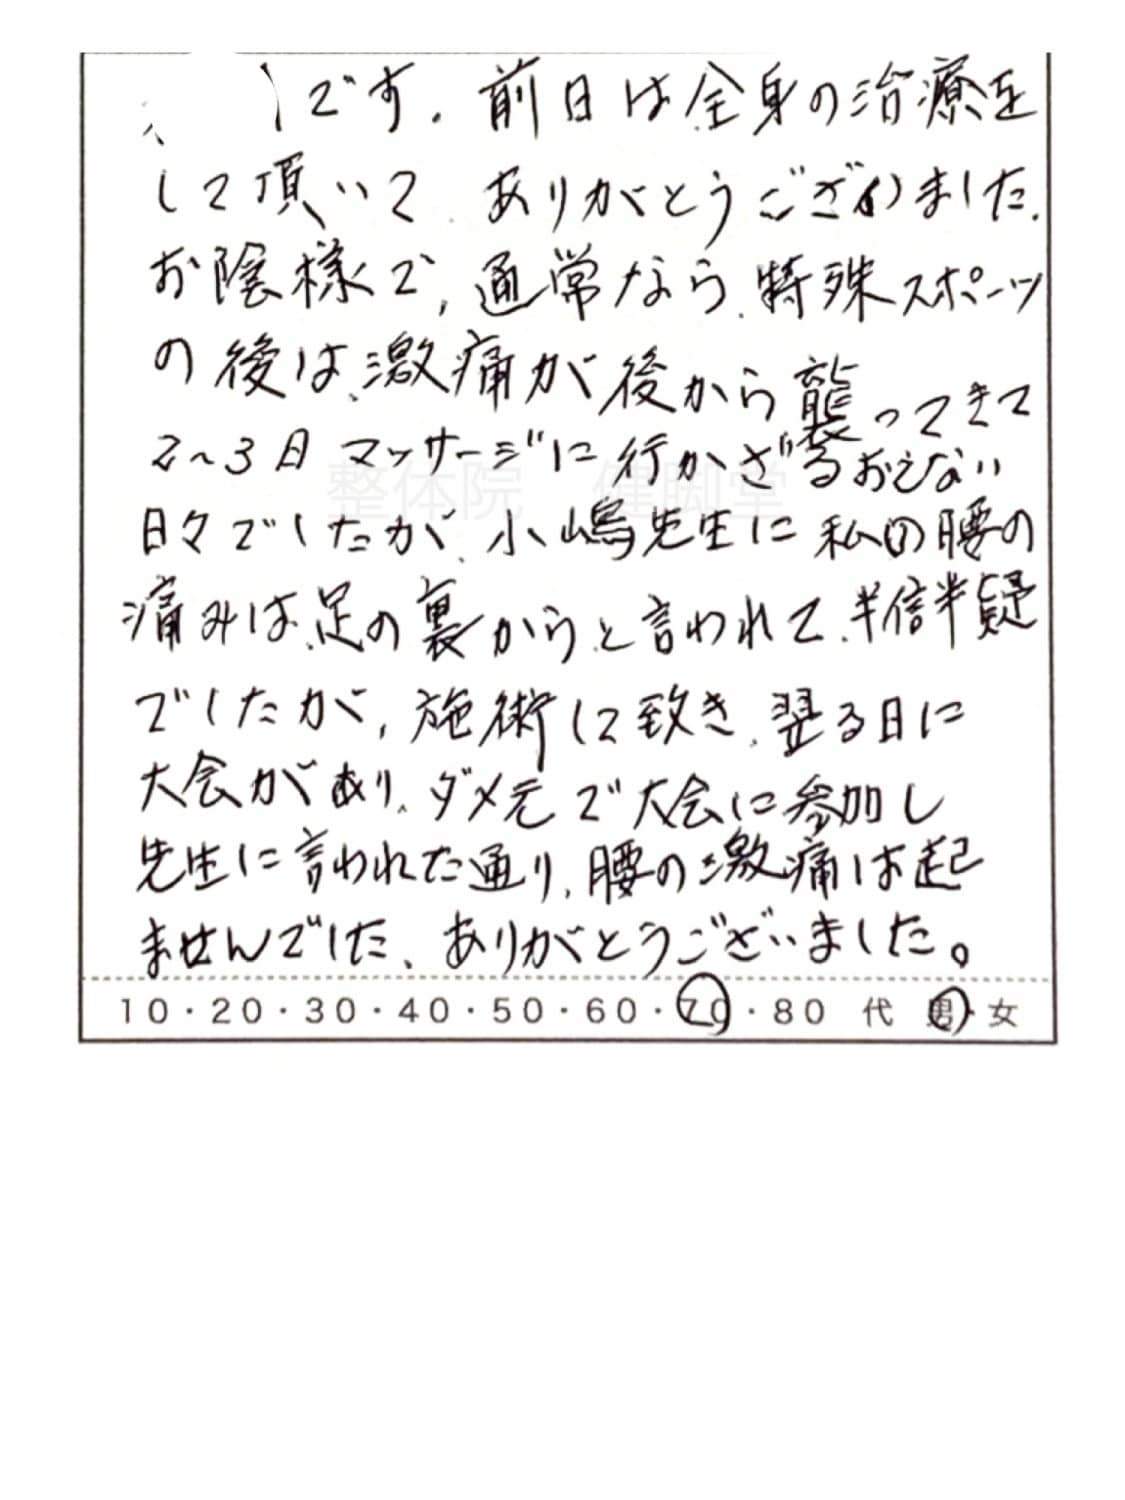 です。前日は全身の治療を
して頂いて、ありがとうございました.
お陰様で,通常なら、特殊スポーツ
の後は、激痛が後から襲ってきて
2~3日マッサージに行かざるおえない
日々でしたが、小嶋先生に私の腰の
痛みは、足の裏からと言われて、半信半疑
でしたが,施術して致き、翌る日に
大会があり、ダメ元で大会に参加し
先生に言われた通り、腰の激痛は起
ませんでした、ありがとうございました。
整体院 健脚堂
10・20・30・40・50・60・70・80 代 男・女